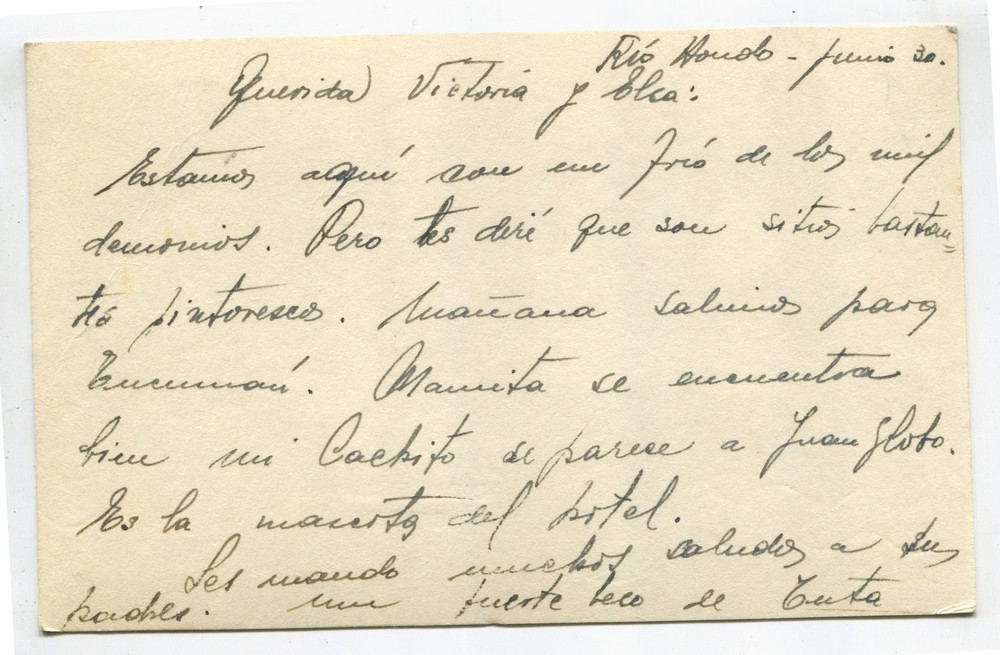 Río Hondo - Junio 30.
Querida Victoria y Elsa:
Estamos aquí con un frió de los mil
demonios. Pero les diré que son sitios bastan=
tes pintorescos. Mañana salimos para
Tucumán. Mamita se encuentra
bien mi Cachito se parece a Juan Globo.
Es la mascota del hotel.
Les mando muchos saludos a sus
padres. un fuerte beso de Tuta